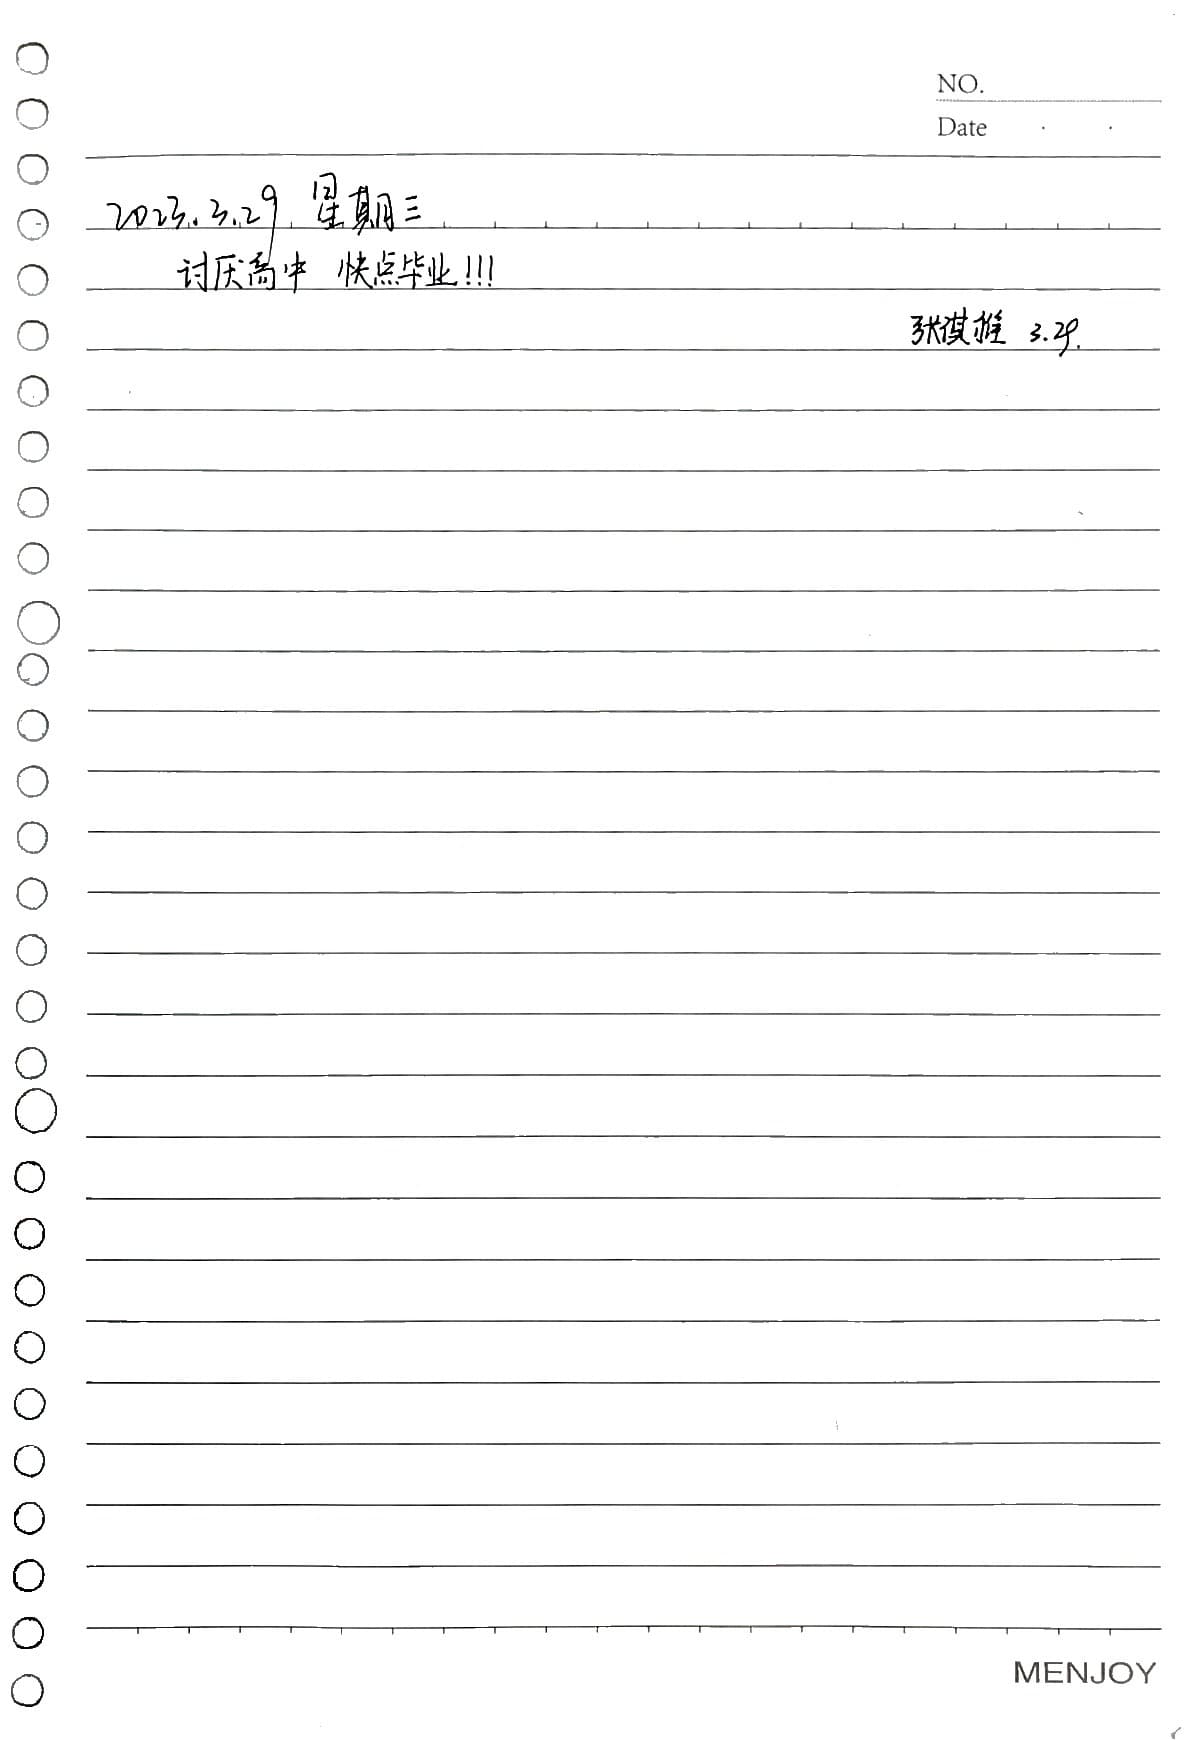 NO.
Date
2023.3.29 星期三
讨厌高中 快点毕业!!!
张淇 3.29.
MENJOY